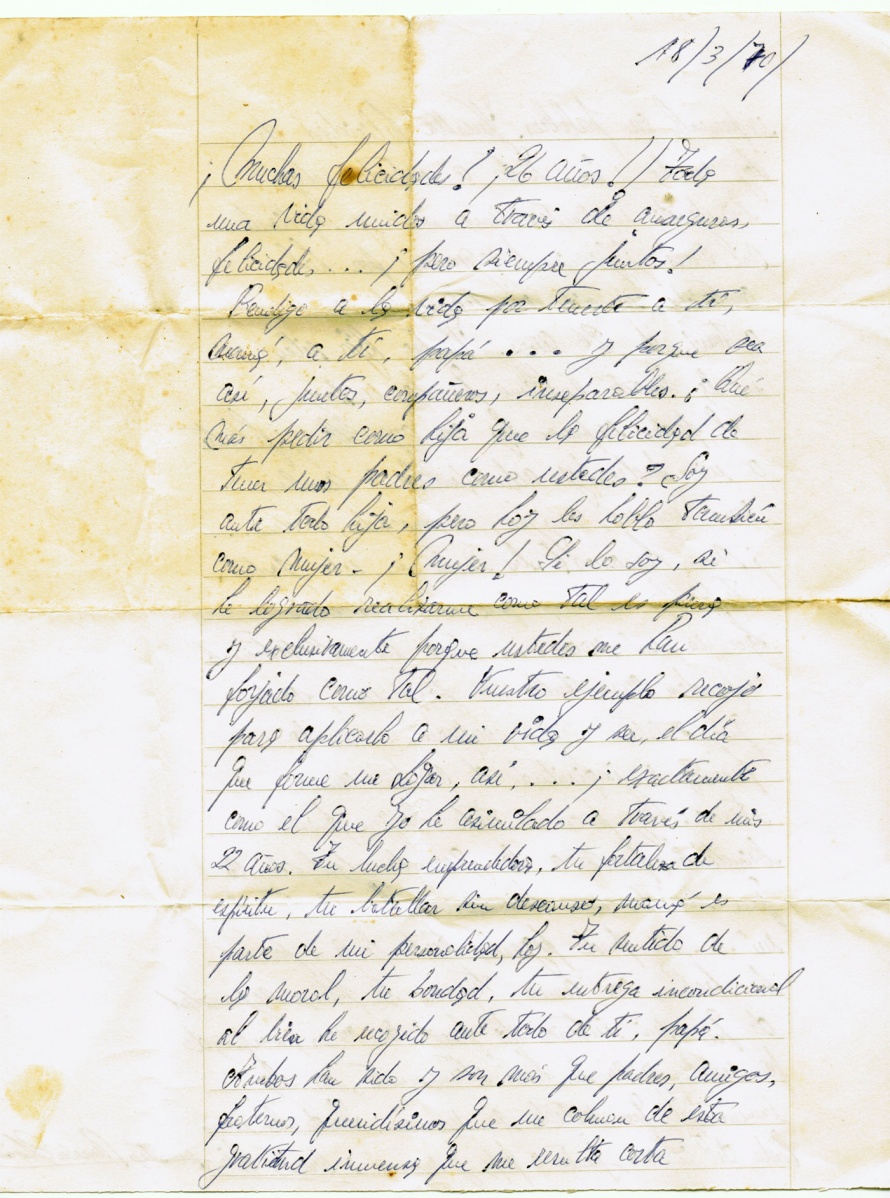 18/3/70/
¡Muchas felicidades! ¡26 años!! Toda
una vida unidos a través de amarguras,
felicidades... ¡pero siempre juntos!
Bendigo a la vida por tenerte a ti,
mamá, a ti, papá .... y porque sea
así, juntos, compañeros, inseparables. ¡Qué
más pedir como hija que la felicidad de
tener unos padres como ustedes? Soy
ante todo hija, pero hoy les hablo también
como mujer - ¡Mujer! Si lo soy, si
he logrado realizarme como tal es pura
y exclusivamente porque ustedes me han
forjado como tal. Vuestro ejemplo recojo
para aplicarlo a mi vida y ser, el día
que forme mi hogar, así, .... ¡exactamente
como el que yo he asimilado a través de mis
22 años. Tu lucha emprendedora, tu fortaleza de
espíritu, tu batallar sin descanso, mamá es
parte de mi personalidad, hoy. Tu sentido de
la moral, tu bondad, tu entrega incondicional
al bien he recogido ante todo de ti, papá.
Ambos han sido y son más que padres, amigos,
fraternos, queridísimos que me colman de esta
gratitud inmensa que me resulta corta